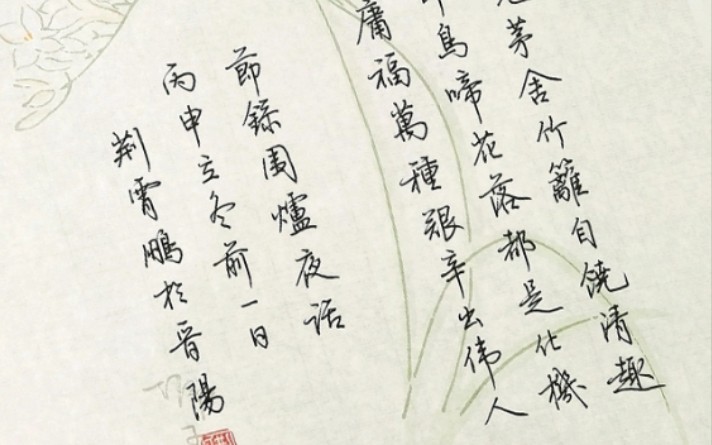 茅舍竹籬自饒清趣
鳥啼花落都是化機
庸福萬種艰辛出伟人
節錄围爐夜话
丙申立冬前一日
荆霄鵬於晋陽